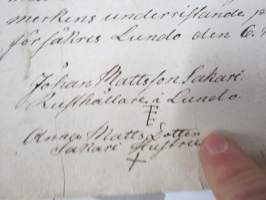 merkens underristande
försäkres Lundo den 6.
Johan Mattsson Sakari
Rusthållare i Lundo.
Anna Matts Dotter
Sakari Hustru